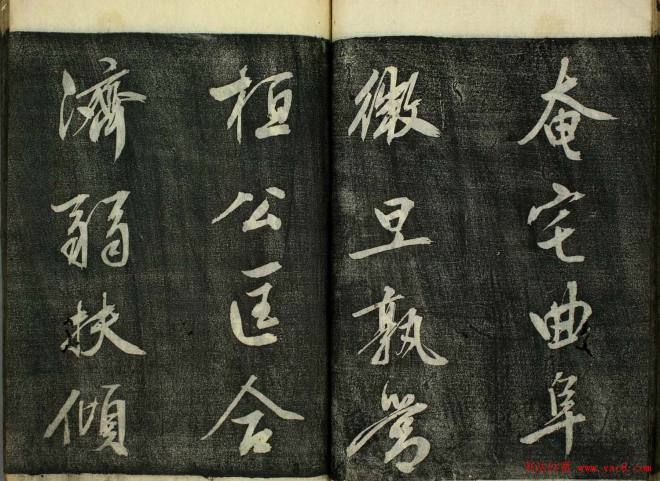 奄宅曲阜
微旦孰營
桓公匡合
濟弱扶傾
www.yac8.com